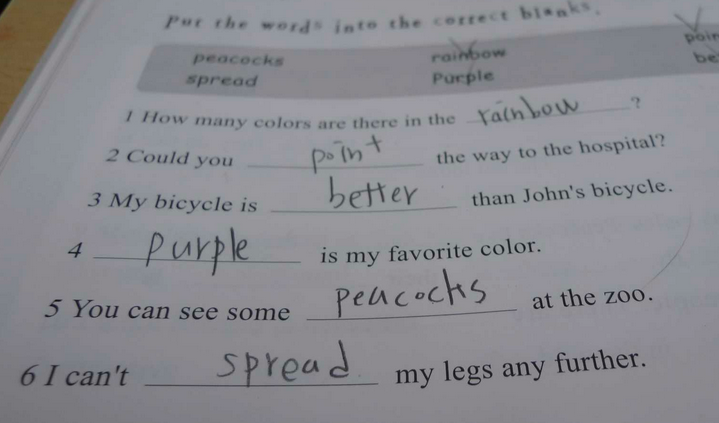 Put the words into the correct blanks.
peacocks rainbow
spread Purple
1 How many colors are there in the rainbow ?
2 Could you point the way to the hospital?
3 My bicycle is better than John's bicycle.
4 purple is my favorite color.
5 You can see some peacocks at the zoo.
6 I can't spread my legs any further.